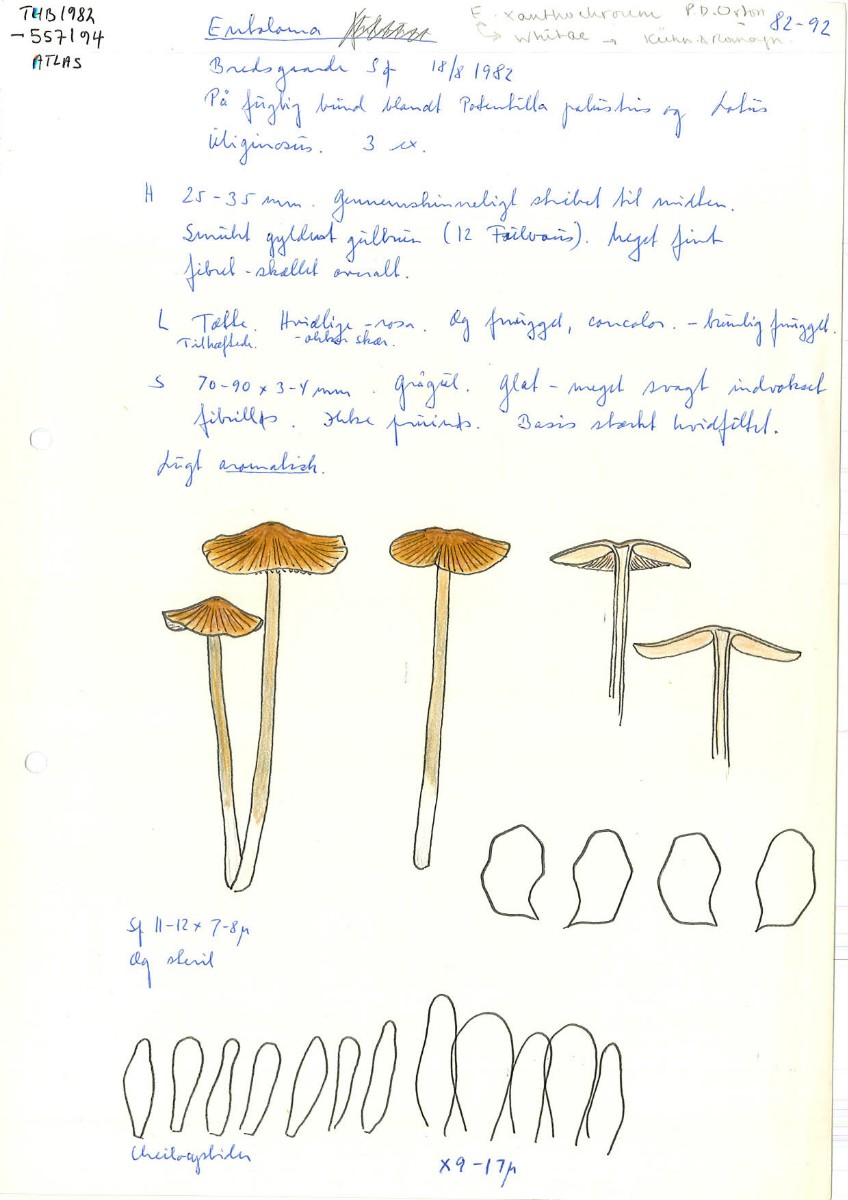 THB1982
-557/94
ATLAS
E. xanthochroum P.D. Orton
→ whitae → Kühn. & Romagn.
82-92
Entoloma
Bredsgaarde Sø 18/8 1982
På fugtig bund blandt Potentilla palustris og Lotus
uliginosus. 3 ex.
H 25-35 mm. Gennemskinneligt stribet til midten.
Smukt gyldent gulbrun (12 Fulvous). Meget fint
fibret-skællet overalt.
L Tætte. Hvidlige-rosa. Æg fnugget, concolor. - brunlig fnugget.
Tilhæftede. -okker skær.
S 70-90 x 3-4 mm. Grågul. Glat - meget svagt indvokset
fibrilløs. Ikke pruinøs. Basis stærkt hvidfiltet.
Lugt aromatisk.
Sp 11-12 x 7-8 µ
Æg steril
Cheilocystider
x 9-17 µ